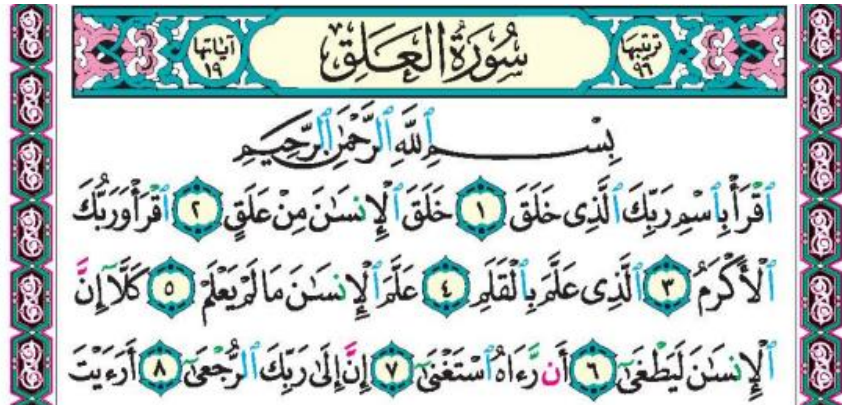 ترتيبها ٩٦ سُورَةُ الْعَلَقِ آيَاتها ١٩
بِسْمِ ٱللَّهِ ٱلرَّحْمَٰنِ ٱلرَّحِيمِ
ٱقْرَأْ بِٱسْمِ رَبِّكَ ٱلَّذِى خَلَقَ ١ خَلَقَ ٱلْإِنسَٰنَ مِنْ عَلَقٍ ٢ ٱقْرَأْ وَرَبُّكَ
ٱلْأَكْرَمُ ٣ ٱلَّذِى عَلَّمَ بِٱلْقَلَمِ ٤ عَلَّمَ ٱلْإِنسَٰنَ مَا لَمْ يَعْلَمْ ٥ كَلَّآ إِنَّ
ٱلْإِنسَٰنَ لَيَطْغَىٰٓ ٦ أَن رَّءَاهُ ٱسْتَغْنَىٰٓ ٧ إِنَّ إِلَىٰ رَبِّكَ ٱلرُّجْعَىٰٓ ٨ أَرَءَيْتَ